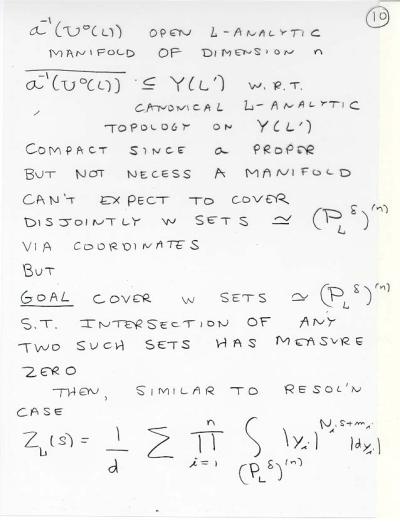 10
a⁻¹(U⁰(L)) OPEN L-ANALYTIC
MANIFOLD OF DIMENSION n
a⁻¹(U⁰(L)) ⊆ Y(L') W.R.T.
CANONICAL L-ANALYTIC
TOPOLOGY ON Y(L')
COMPACT SINCE a PROPER
BUT NOT NECESS A MANIFOLD
CAN'T EXPECT TO COVER
DISJOINTLY W SETS ≃ (P_L^δ)^(n)
VIA COORDINATES
BUT
GOAL COVER W SETS ≃ (P_L^δ)^(n)
S.T. INTERSECTION OF ANY
TWO SUCH SETS HAS MEASURE
ZERO
THEN, SIMILAR TO RESOL'N
CASE
Z_L(s) = 1/d Σ ∏_{i=1}^{n} ∫_{(P_L^δ)^(n)} |y_i|^{N_i s+m_i} |dy_i|